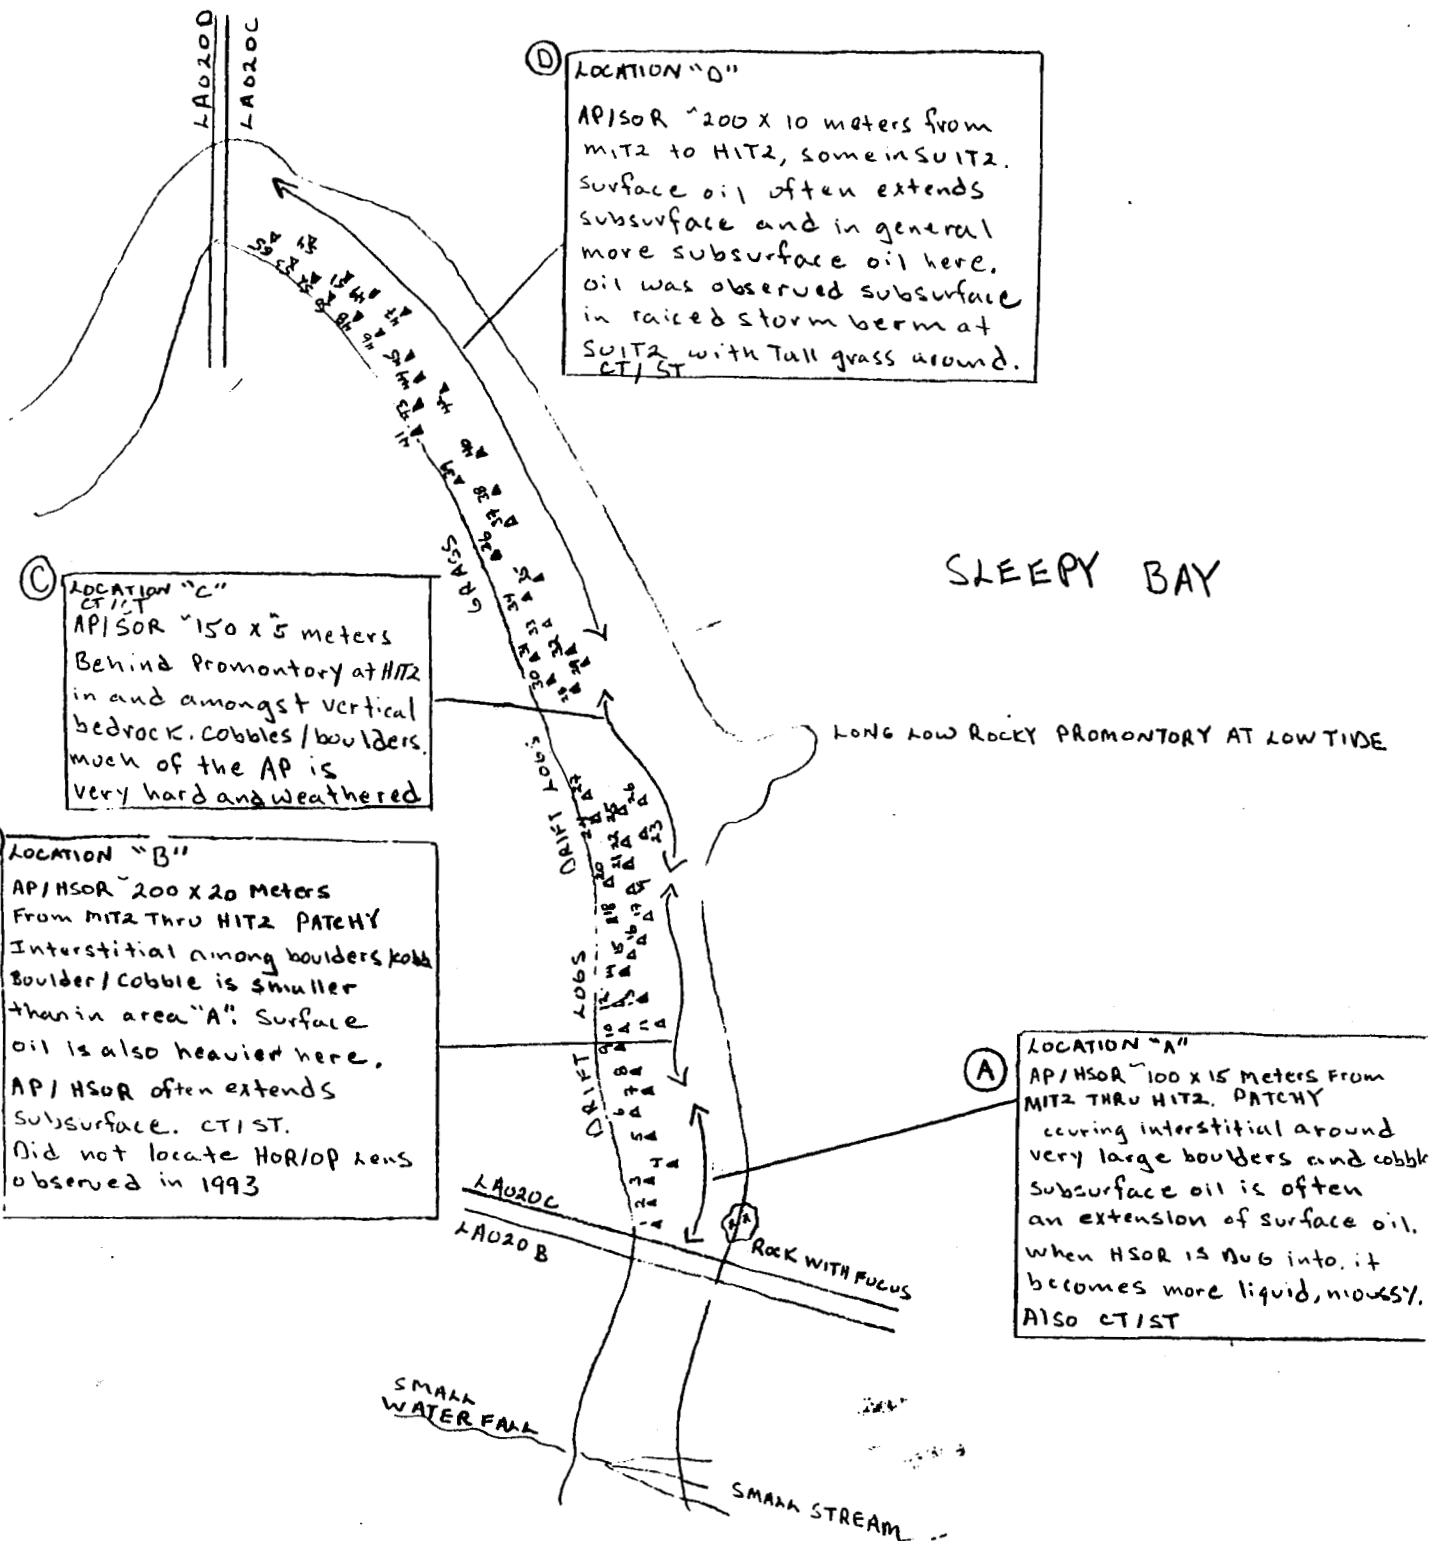 LA020D
LA020C
D
LOCATION "D"
AP/SOR ~200 X 10 meters from
MIT2 to HIT2, some in SUIT2.
surface oil often extends
subsurface and in general
more subsurface oil here.
oil was observed subsurface
in raiced storm berm at
SUIT2 with Tall grass around.
CT/ST
65
54
53
52
51
50
49
48
47
46
45
44
43
42
41
40
39
38
37
36
35
34
33
32
31
30
29
28
GRASS
SLEEPY BAY
C
LOCATION "C"
CT/ST
AP/SOR ~150 X ~5 meters
Behind Promontory at HIT2
in and amongst vertical
bedrock. cobbles/boulders.
much of the AP is
very hard and weathered
LONG LOW ROCKY PROMONTORY AT LOW TIDE
DRIFT LOGS
27
26
25
24
23
22
21
20
19
18
17
16
15
14
13
12
11
10
9
8
7
6
5
4
3
2
1
LOCATION "B"
AP/HSOR ~200 X 20 Meters
From MIT2 Thru HIT2 PATCHY
Interstitial among boulders/cobb
Boulder/Cobble is smaller
than in area "A". Surface
oil is also heavier here.
AP/HSOR often extends
subsurface. CT/ST.
Did not locate HOR/OP Lens
observed in 1993
DRIFT LOGS
A
LOCATION "A"
AP/HSOR ~100 X 15 Meters From
MIT2 THRU HIT2. PATCHY
ccuring interstitial around
very large boulders and cobble
subsurface oil is often
an extension of surface oil.
when HSOR is DUG into, it
becomes more liquid, moussy.
Also CT/ST
LA020C
LA020B
ROCK WITH FUCUS
SMALL
WATER FALL
SMALL STREAM